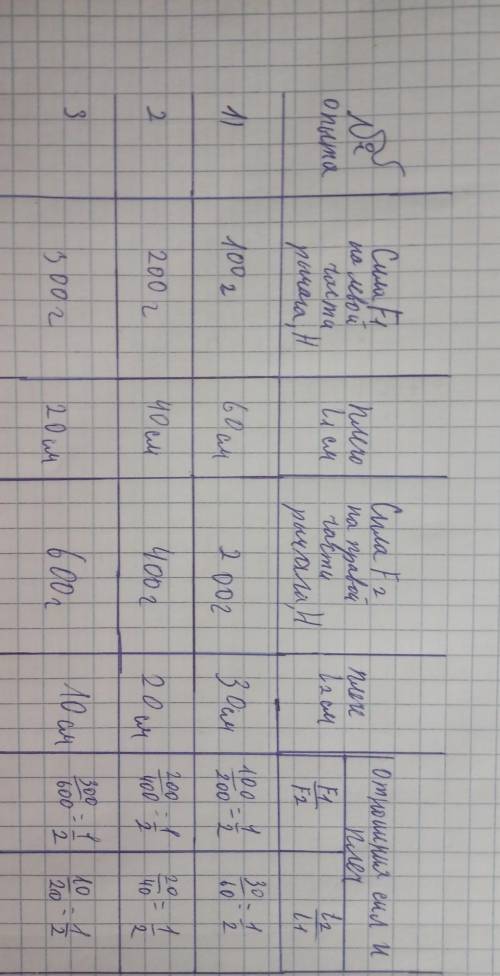 № опыта
Сила F1 на левой части рычага, Н
Плечо l1 см
Сила F2 на правой части рычага, Н
l2 см
F1/F2
l2/l1
1) 100г 60см 200г 30см 100/200 = 1/2 30/60 = 1/2
2 200г 40см 400г 20см 200/400 = 1/2 20/40 = 1/2
3 300г 20см 600г 10см 300/600 = 1/2 10/20 = 1/2